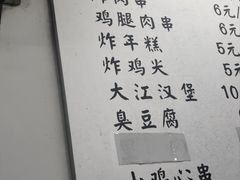 炸肉串 6元/
鸡腿肉串 6元
炸年糕 5元
炸鸡尖 5元
大江汉堡 10
臭豆腐 8
鸡心串